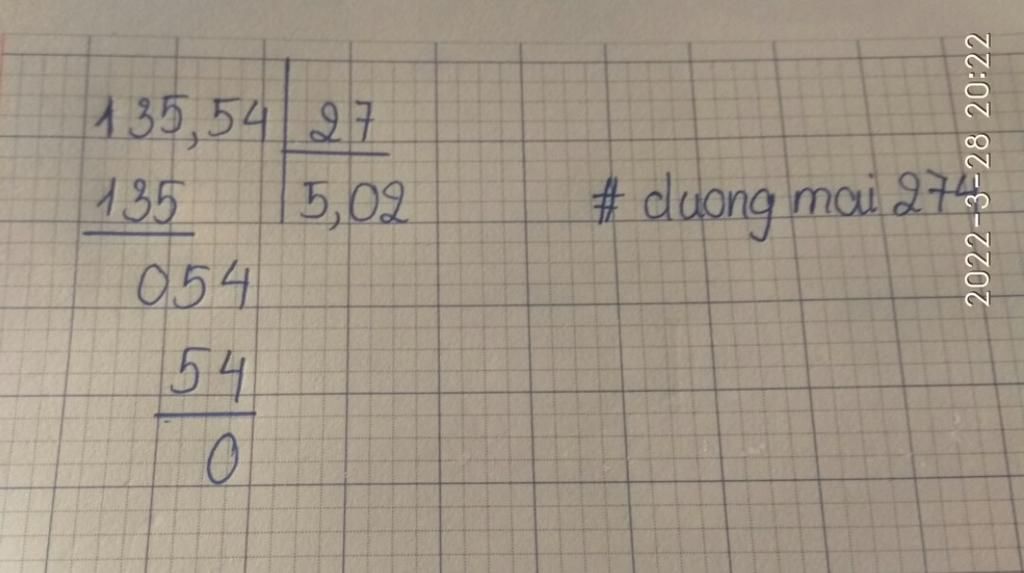 135,54 27
135 5,02
054
54
0
# duong mai 274
2022-3-28 20:22